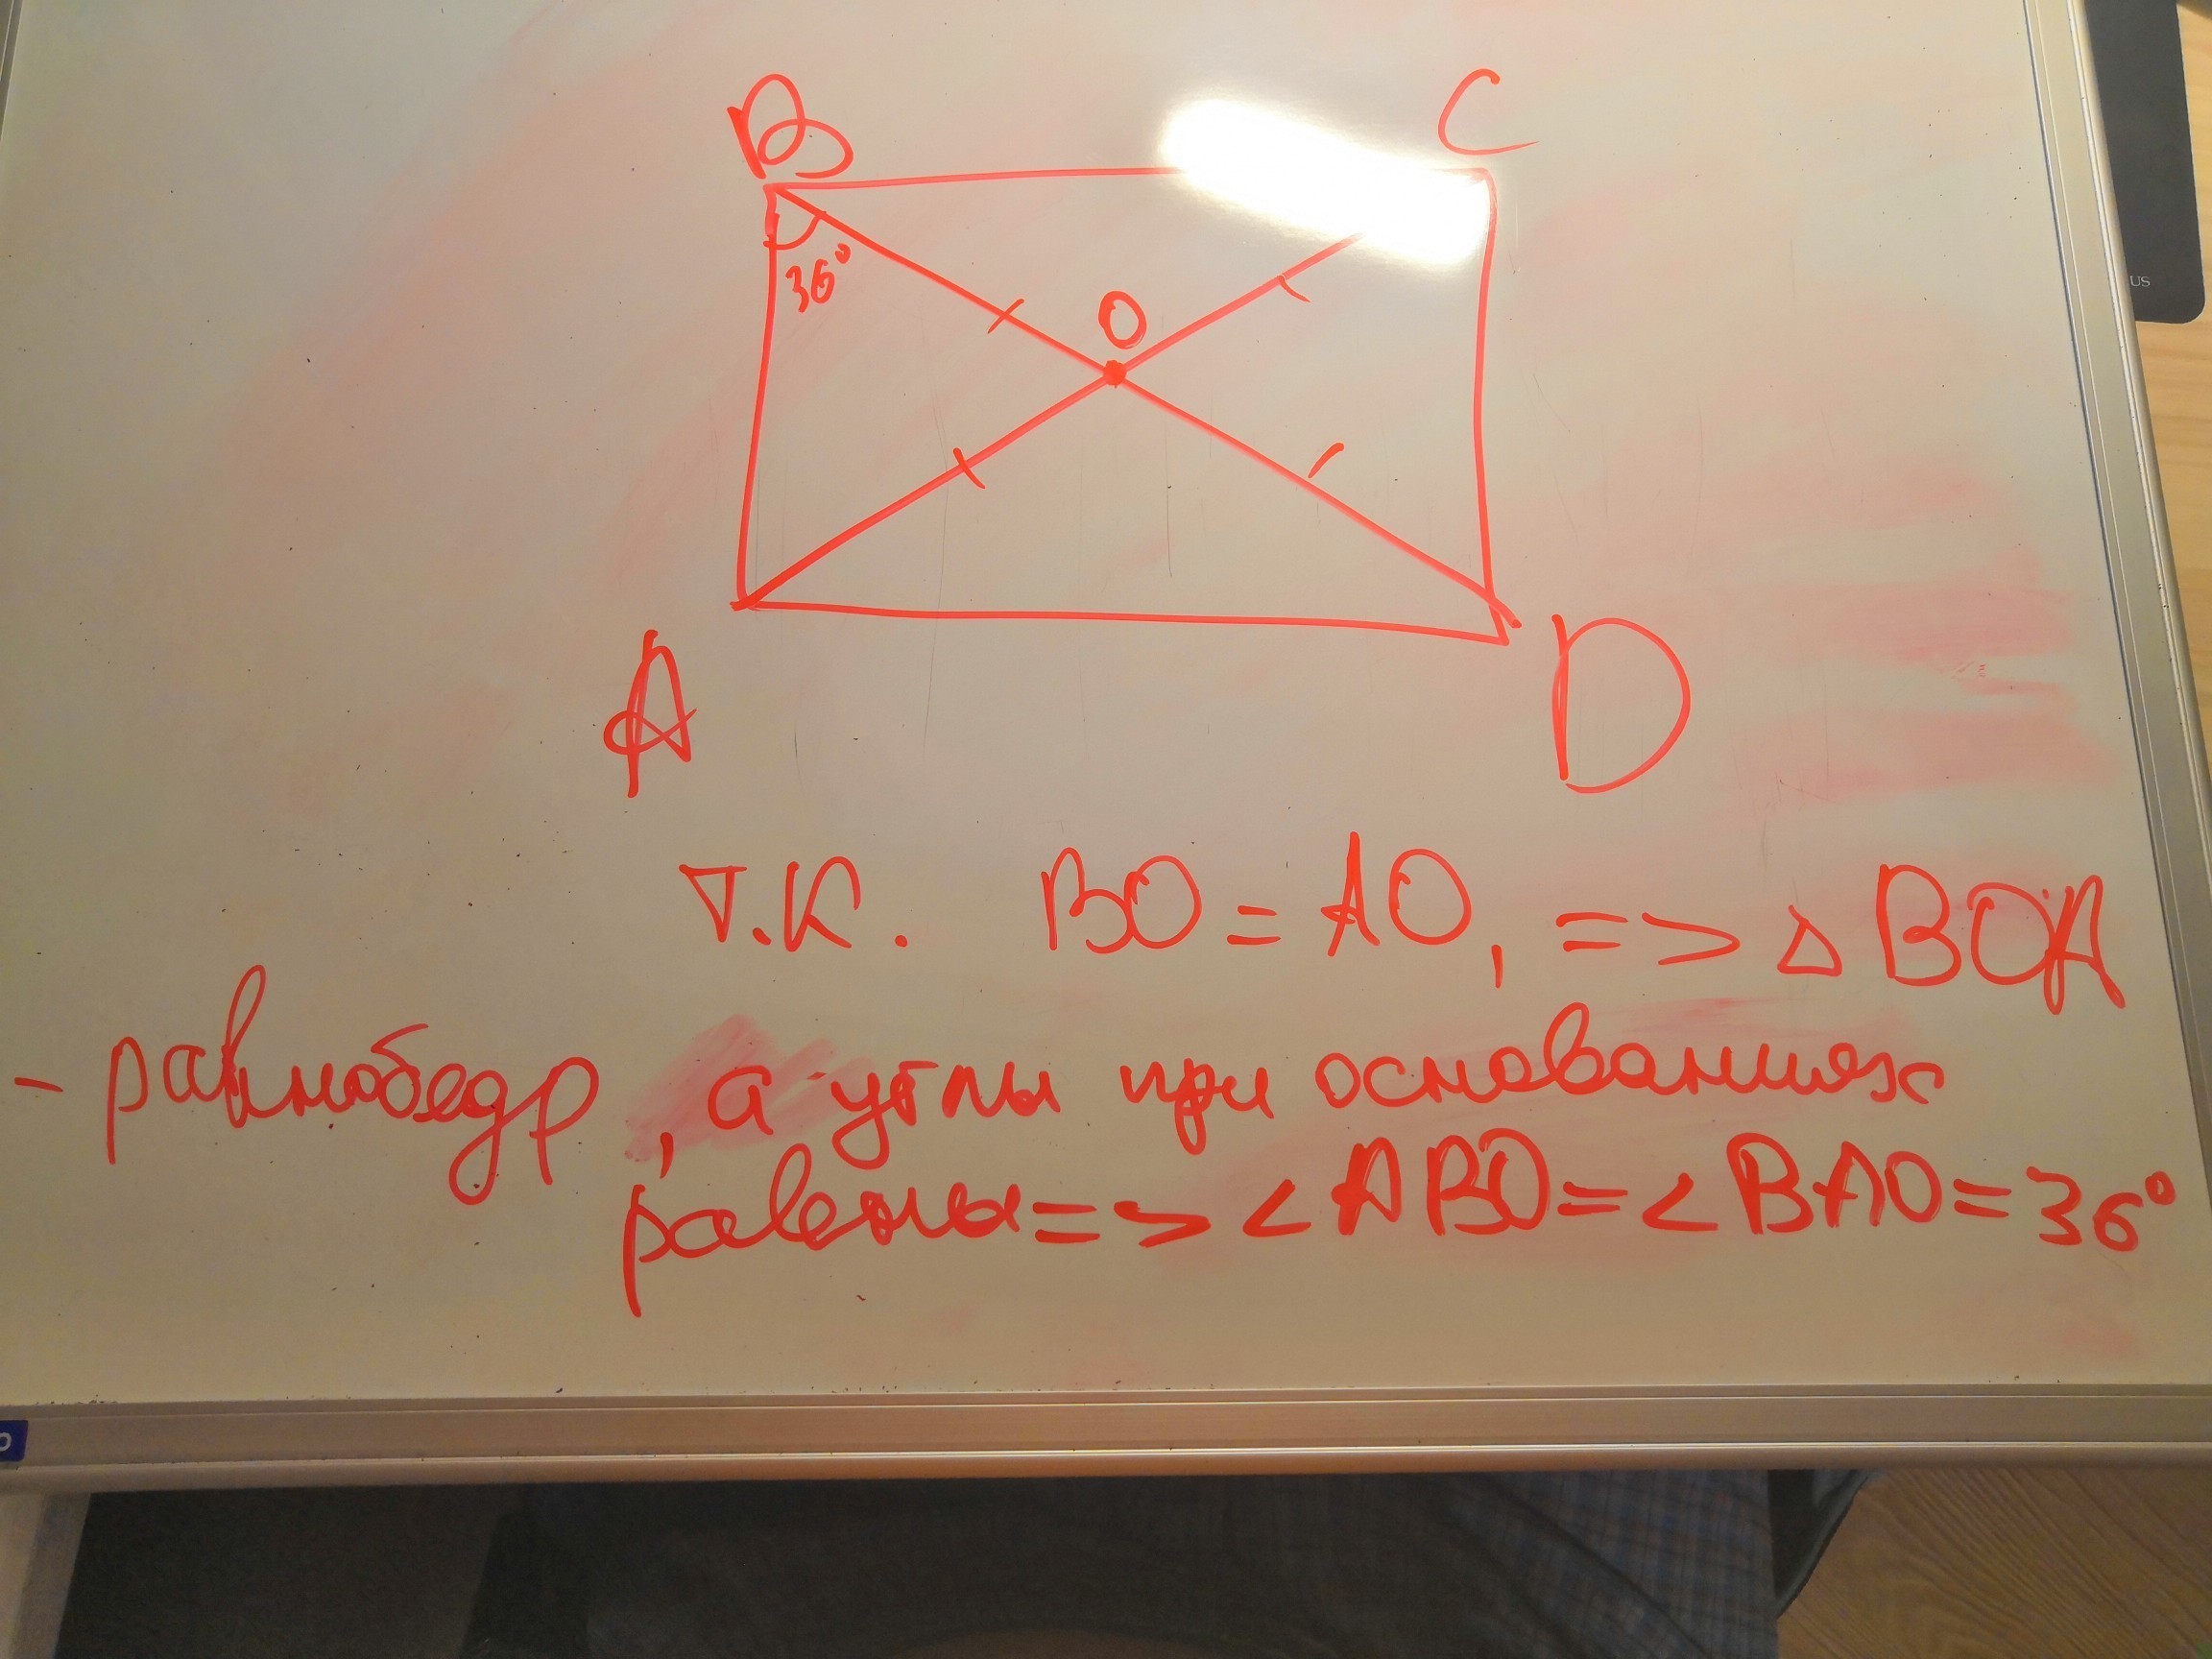 B
C
36°
O
A
D
т.к. BO = AO, => △ BOA
- равнобедр, а углы при основаниях
равны => < ABO = < BAO = 36°
US